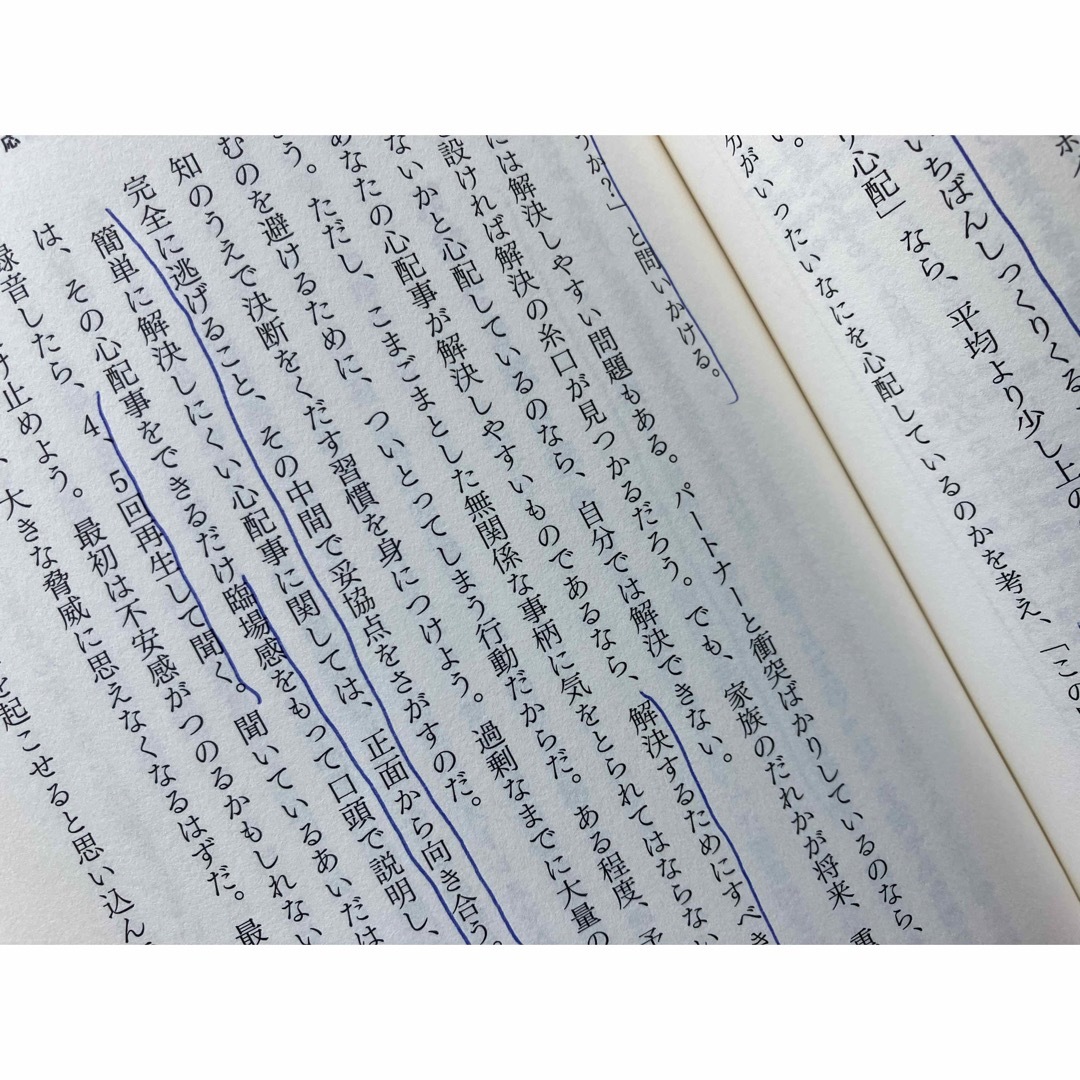 ホ
いちばんしっくりくる
り心配」なら、平均より少し上の
分がいったいなにを心配しているのかを考え、「この
い。
うか？」と問いかける。
には解決しやすい問題もある。パートナーと衝突ばかりしているのなら、
設ければ解決の糸口が見つかるだろう。でも、家族のだれかが将来、重
ないかと心配しているのなら、自分では解決できない。
あなたの心配事が解決しやすいものであるなら、解決するためにすべき
う。ただし、こまごまとした無関係な事柄に気をとられてはならない
むのを避けるために、ついとってしまう行動だからだ。ある程度、予
知のうえで決断をくだす習慣を身につけよう。過剰なまでに大量の
完全に逃げること、その中間で妥協点をさがすのだ。
簡単に解決しにくい心配事に関しては、正面から向き合う。
は、その心配事をできるだけ臨場感をもって口頭で説明し、
録音したら、4、5回再生して聞く。聞いているあいだは
け止めよう。最初は不安感がつのるかもしれない
、大きな脅威に思えなくなるはずだ。最
を起こせると思い込ん
応